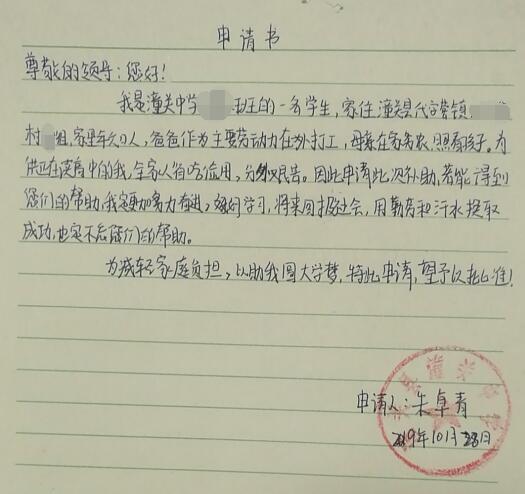 申请书
尊敬的领导:您好!
我是潼关中学 班的一名学生,家住潼关县代字营镇
村 组,家里有人,爸爸作为主要劳动力在外打工,母亲在家务农、照看孩子。为
供正在读高中的我,全家人省吃俭用,分外艰苦。因此申请此次补助,若能得到
您们的帮助,我定更加努力奋进,好好学习,将来回报社会,用勤劳和汗水换取
成功,也定不忘您们的帮助。
为减轻家庭负担,以助我圆大学梦,特此申请,望予以批准!
申请人:朱卓青
2019年10月28日